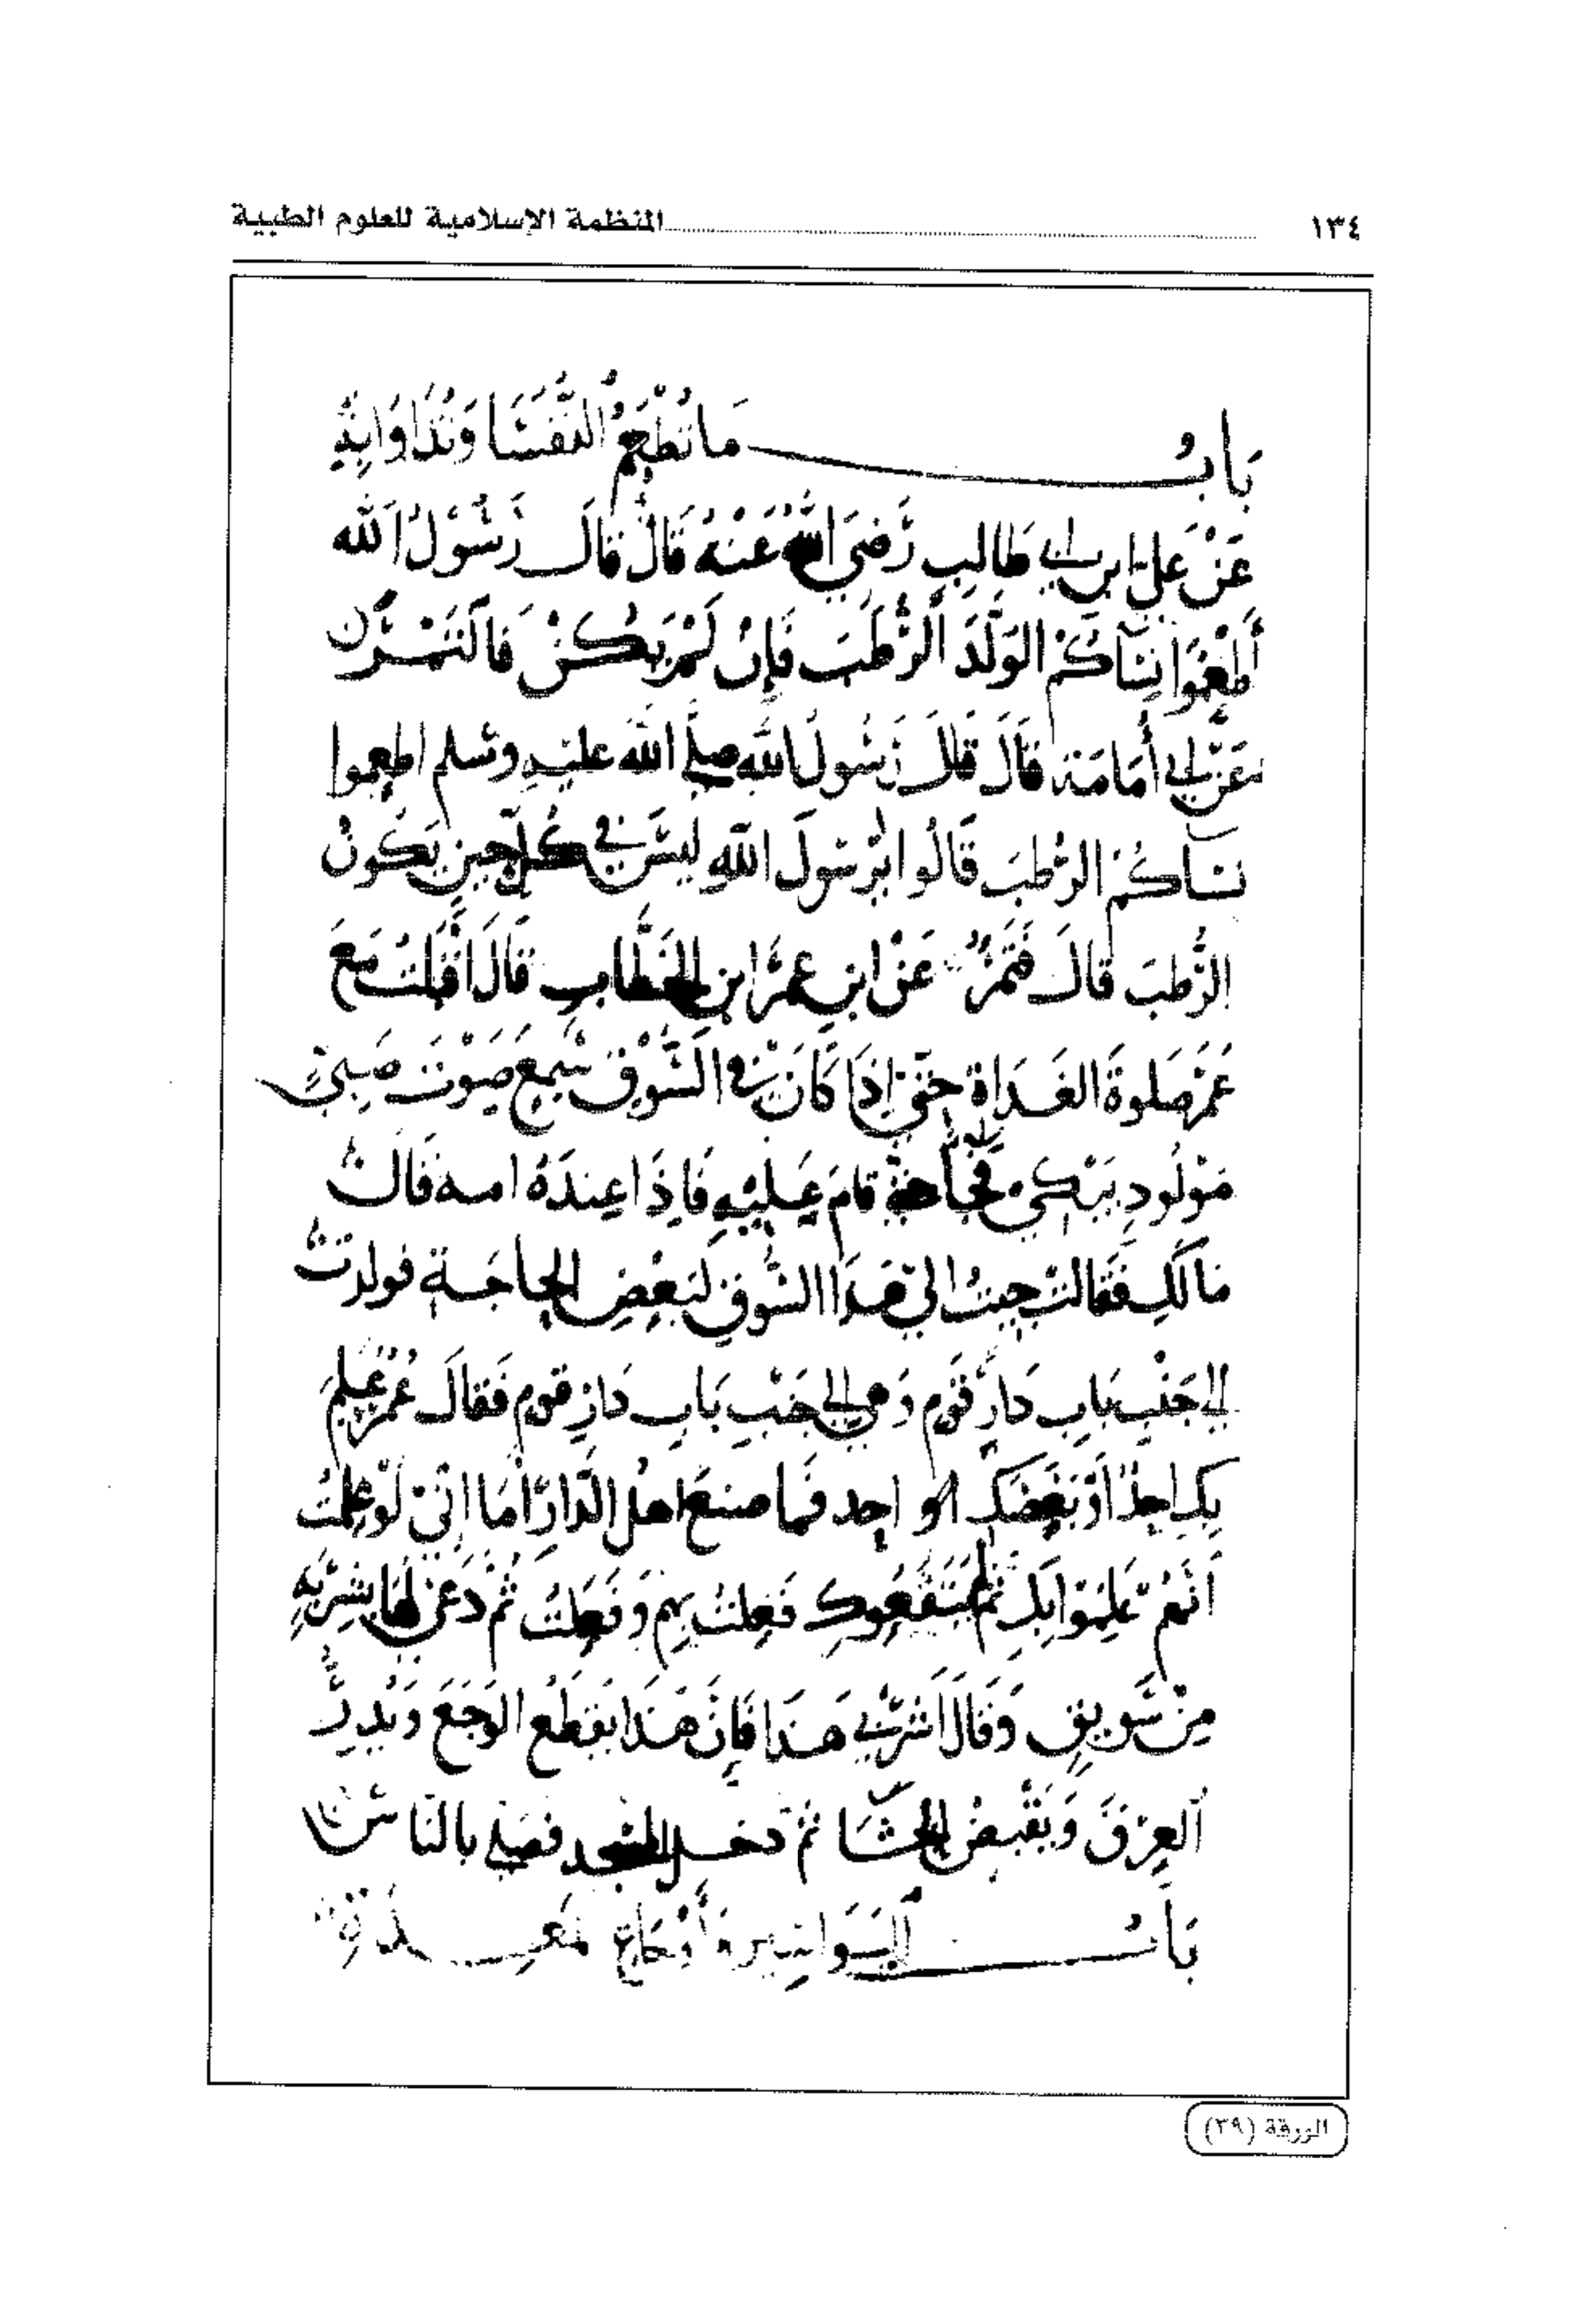 ١٣٤ المنظمة الإسلامية للعلوم الطبية
بَابُ مَا تُطْعَمُ النُّفَسَا وَتُدَاوَا بِهِ
عَنْ عَلِي ابن ابي طَالِبٍ رَضِيَ اللهُ عَنْهُ قَالَ قَالَ رَسُوْلُ الله
أَطْعِمُوا نِسَآكُمْ الوَلَّدَ الرُّطَبَ فَإِنْ لَمْ يَكُنْ فَالتَمْرُ
عَنْ ابي أُمَامَة قَالَ قَالَ رَسُولُ اللهِ صلى الله عليه وسلم اطعموا
نسَآكُمْ الرُطَبَ قَالُوا يُرسُولَ اللهِ لَيْسَ فِي كُلِّ حِينٍ يَكُونُ
الرُّطَبَ قَالَ فَتَمْرٌ عَنْ ابنِ عمَرَ ابن الخَطَّابِ قَالَ اقْبَلتُ مَعَ
عُمَرْ صَلوةَ الغَدَاة حَتَّى إِذَا كَانَ في السُّوْقِ سَمِعَ صَوْتَ صَبِيٍّ
مَوْلُودٍ يَبْكِي قَامَ عَلَيْهِ فَاِذَا عِندَهُ امه فَقَال
مَا لَكِ فَقَالتْ جيتُ الي هَذَا السُّوقِ لبَعْضِ الحاجَةِ فولدتُ
الي جَنْبِ بَابِ دَارِ قَوْمٍ وَهي الي جَنْبِ بَابِ دَارِ قومٍ فَقَالَ عُمَرْ عَلِمَ
بِكِ احِدٌ اَوْ بَعْضَكِ احِد فَمَا صنعَ اهلُ الدَّارِ اَمَا اِنّي لَوْ عَلِمْتُ
اَنَّهُمْ عَلِمُوا بِكِ ثُمَّ لَم يَنْفَعُوكِ فَعِلتُ بِهِمْ وَفَعِلتُ ثُمَّ دَعي لهَا بشِرْبَهِ
مِنْ سَوِيقٍ وَقَالَ اشْرَبِي هَذَا فَإِنَّ هَذَا يَقْطَعُ الوَجَعَ وَيُدِرُّ
العِرْقَ وَيَقْبِضُ الحَشَا ثمَّ دَخل المسْجد فصَلي بالنَاسِ
بَابُ البَوَاسِير وَأَوْجَاعِ المَعِدَةِ
الورقة (٣٩)